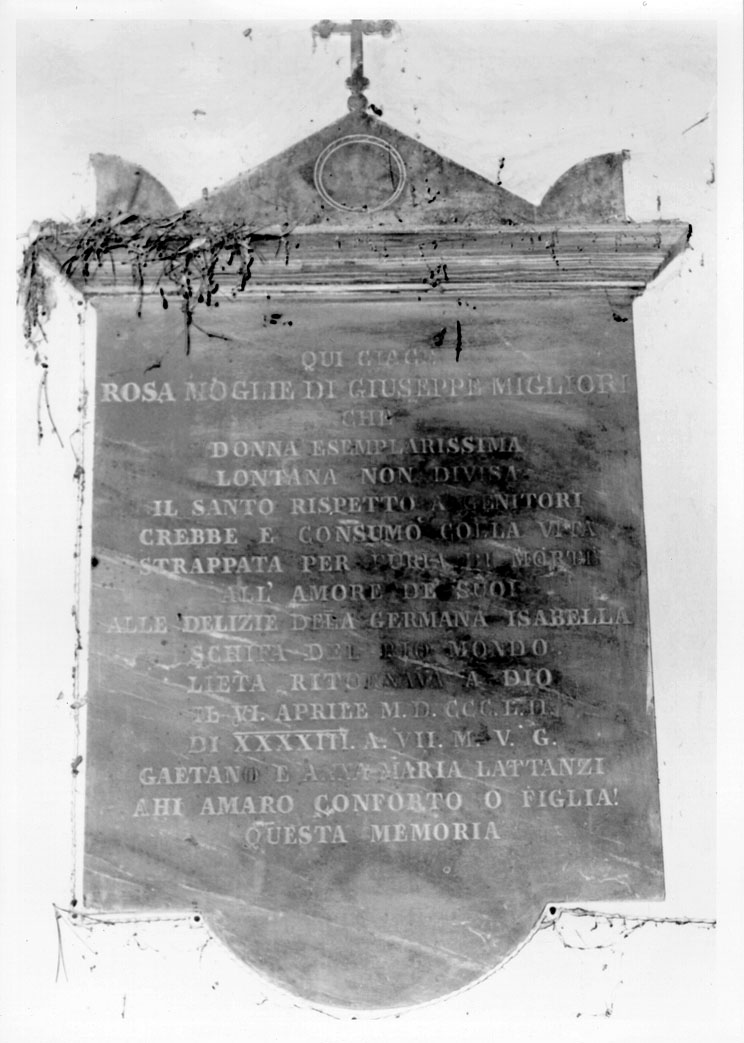 QUI GIACE
ROSA MOGLIE DI GIUSEPPE MIGLIORI
CHE
DONNA ESEMPLARISSIMA
LONTANA NON DIVISA
IL SANTO RISPETTO A GENITORI
CREBBE E CONSUMO COLLA VITA
STRAPPATA PER FURIA DI MORTE
ALL' AMORE DE' SUOI
ALLE DELIZIE DELA GERMANA ISABELLA
SCHIFA DEL RIO MONDO.
LIETA RITORNAVA A DIO
IL VI. APRILE M. D. CCC. LII.
DI XXXXIII. A. VII. M. V. G.
GAETANO E ANNA MARIA LATTANZI
AHI AMARO CONFORTO O FIGLIA!
QUESTA MEMORIA